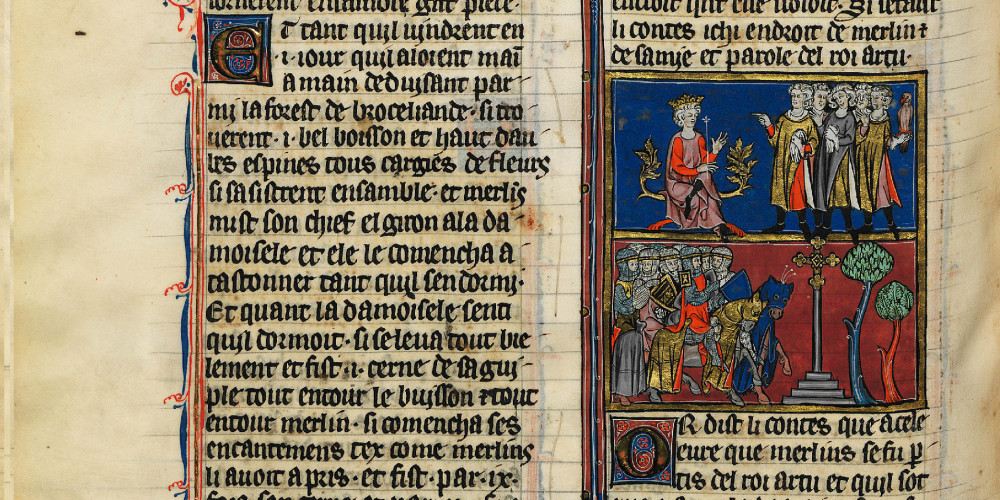 tornerent ensamble grit piece
Et tant quil vindrent en
·i· iour quil aloient mai
a main deduisant par
mi la forest de broceliande · si tro
uerent ·i· bel boisson et haut dau
bes espines tous cargies de fleurs
si sasistrent ensamble · et merlins
mist son chief el giron a la da
moisele et ele le comencha a
tastonner tant quil sendormi·
Et quant la damoisele senti
quil dormoit · si se leua tout bie
lement et fist ·i· cerne de sa gui
ple tout entour le buisson ⁊ tout
entour merlin · si comencha ses
encantemens tex come merlins
li auoit apris · et fist par ·ix·
fois son
cuidoit quil ele Si se taist
li contes ichi endroit de merlin ⁊
de samie et parole del roi artu·
OR dist li contes que a cele
eure que merlins se fu p
tis del roi artu et quil sot